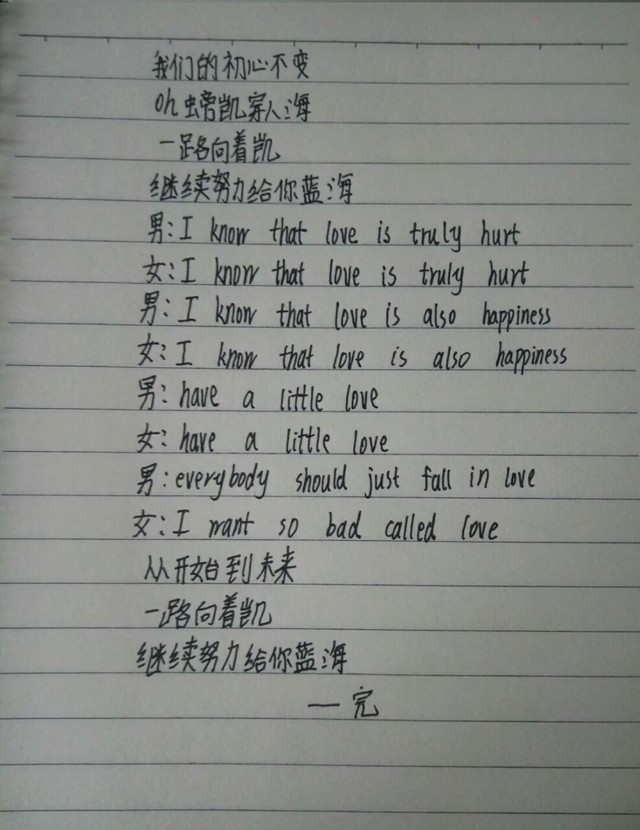 我们的初心不变
Oh 螃凯穿人海
一路向着凯
继续努力给你蓝海
男:I know that love is truly hurt
女:I know that love is truly hurt
男:I know that love is also happiness
女:I know that love is also happiness
男:have a little love
女:have a little love
男:everybody should just fall in love
女:I want so bad called love
从开始到未来
一路向着凯
继续努力给你蓝海
—完